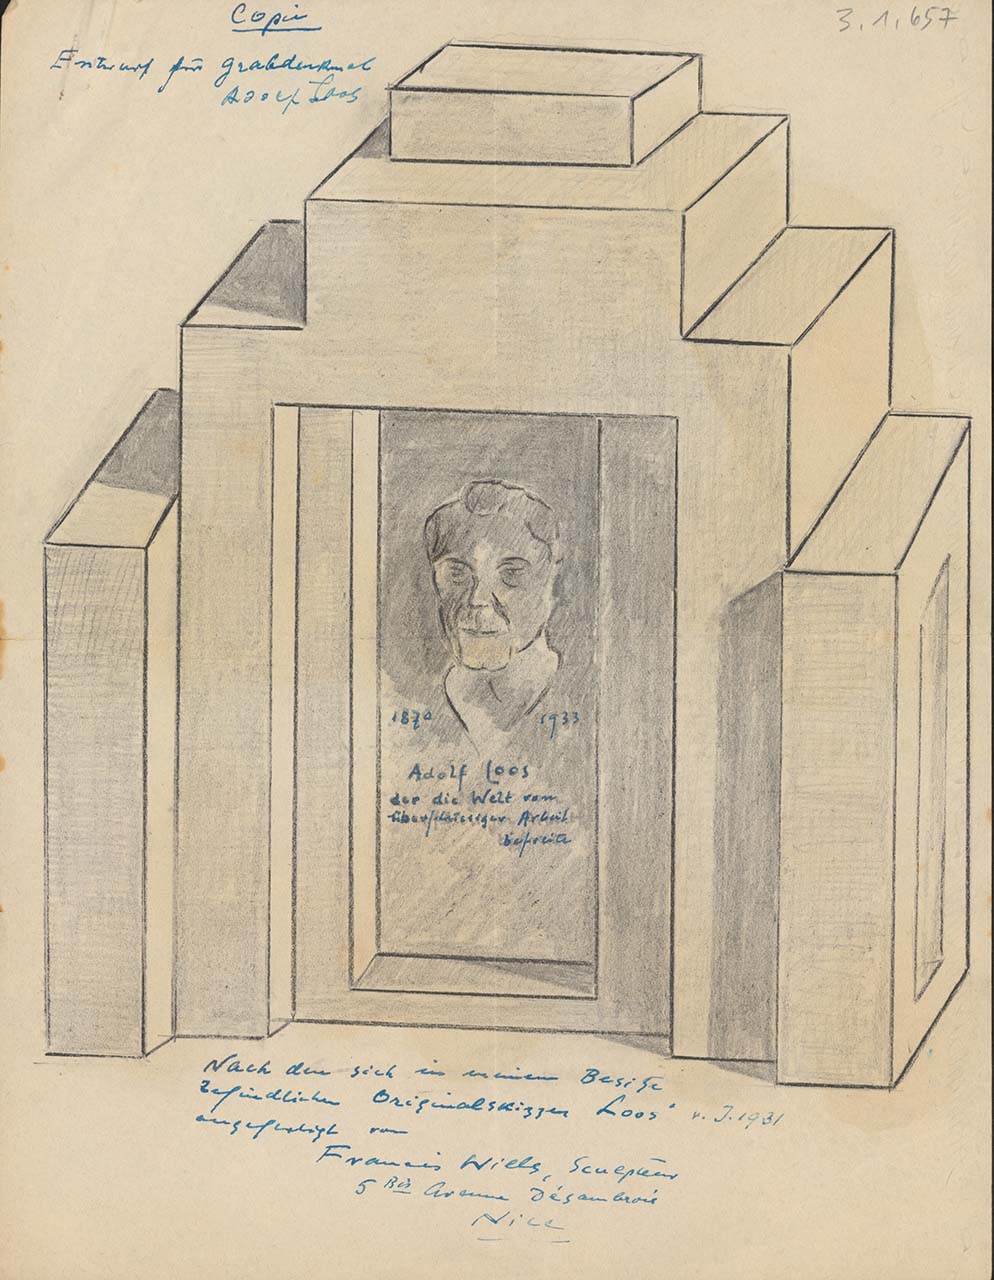 Copie
3.1.657
Entwurf für Grabdenkmal
Adolf Loos
1870 1933
Adolf Loos
der die Welt vom
überflüssiger Arbeit
befreite
Nach den sich in meinem Besitze
befindlichen Originalskizzen Loos' v. J. 1931
angefertigt von
Francis Wills, Sculpteur
5 Bis Avenue Désambrois
Nice